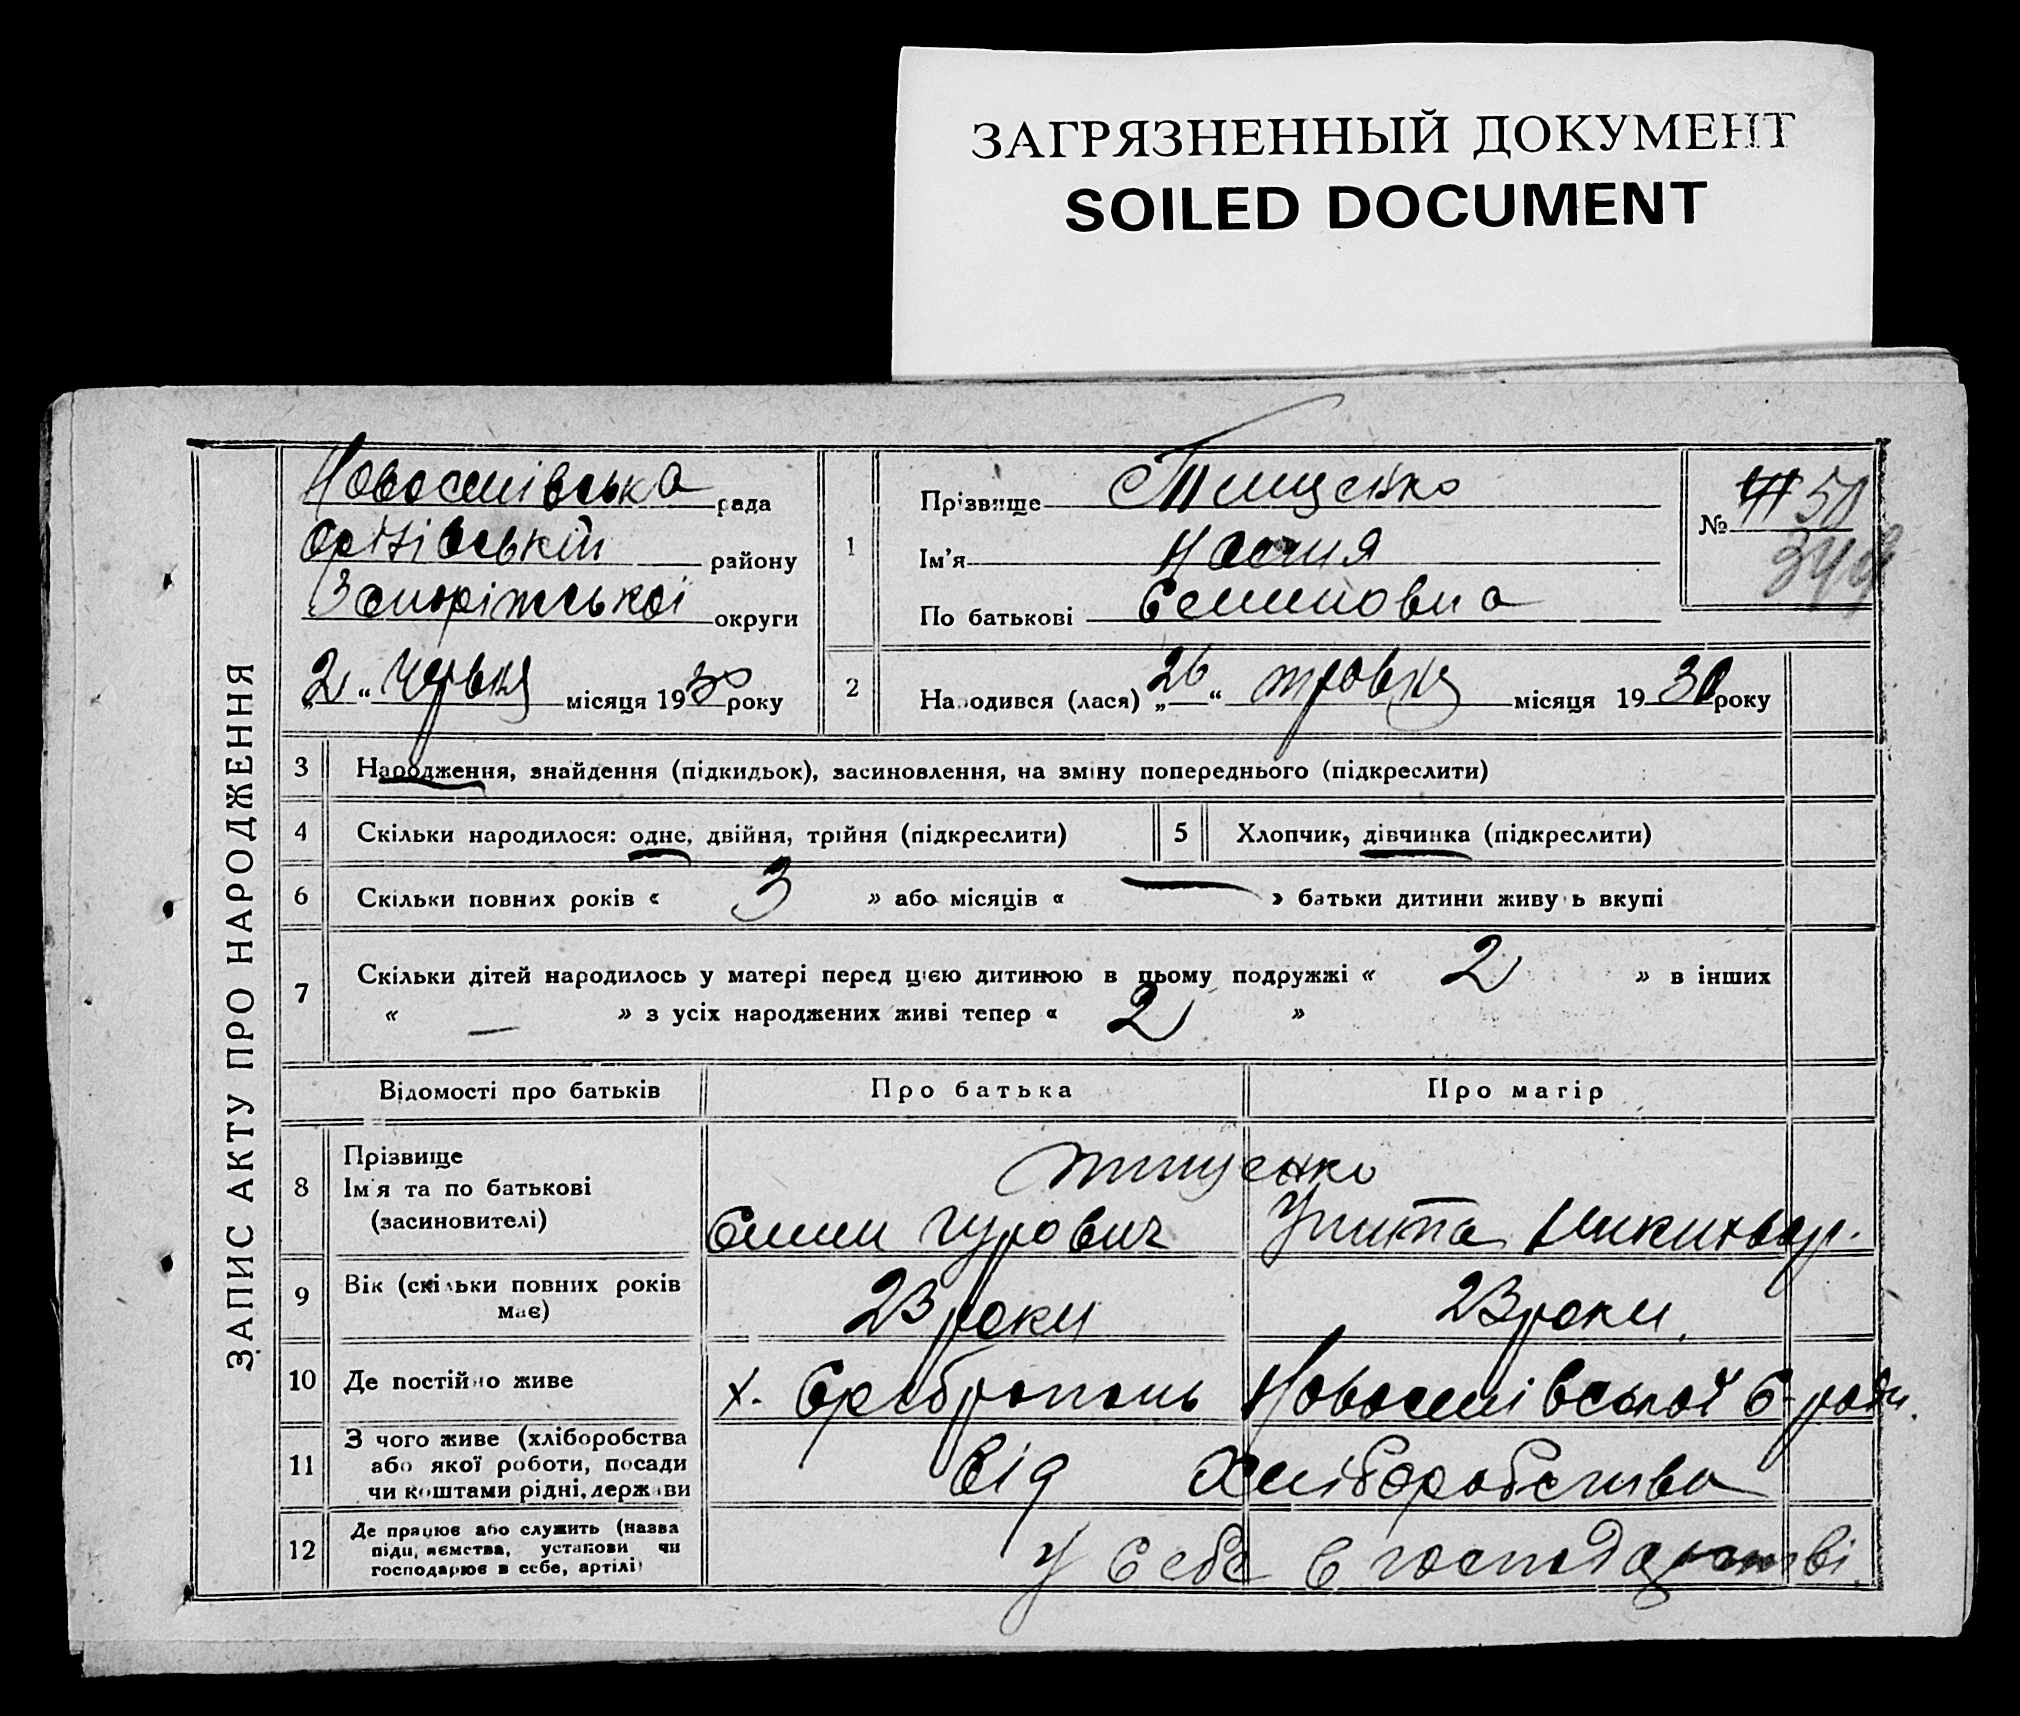 ЗАГРЯЗНЕННЫЙ ДОКУМЕНТ
SOILED DOCUMENT
ЗАПИС АКТУ ПРО НАРОДЖЕННЯ
рада
району
Запоріжської округи
„2“ червня місяця 1930 року
1
Прізвище Тищенко
Ім'я Настя
По батькові
№ 50
349
2
Народився (лася) „26“ травня місяця 1930 року
3 Народження, знайдення (підкидьок), засиновлення, на зміну попереднього (підкреслити)
4 Скільки народилося: одне, двійня, трійня (підкреслити) 5 Хлопчик, дівчинка (підкреслити)
6 Скільки повних років « 3 » або місяців « — » батьки дитини живуть вкупі
7 Скільки дітей народилось у матері перед цією дитиною в цьому подружжі « 2 » в інших
« — » з усіх народжених живі тепер « 2 »
Відомості про батьків Про батька Про матір
8 Прізвище
Ім'я та по батькові
(засиновителі)
Тищенко
Гурович
9 Вік (скільки повних років
має)
23 роки 23 роки.
10 Де постійно живе х.
11 З чого живе (хліборобства
або якої роботи, посади
чи коштами рідні, держави
Від Хліборобства
12 Де працює або служить (назва
підприємства, установи чи
господарює в себе, артілі)
у себе в господарстві.